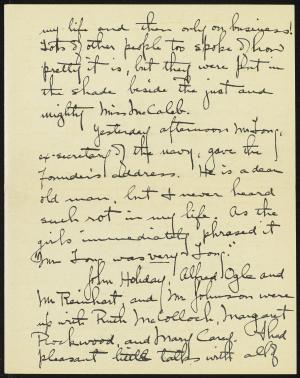 my life and then only on business!
Lots of other people too spoke of how
pretty it is, but they were put in
the shade beside the just and
mighty Miss McCaleb.
Yesterday afternoon Mr Long,
ex-secretary of the navy, gave the
founder's address. He is a dear
old man, but I never heard
such rot in my life. As the
girls immediately phrased it
"Mr Long was very Long."
John Holiday, Alfred Ogle and
Mr Reinhart, and Mr Johnson were
up with Ruth McColloch, Margaret
Rockwood, and Mary Carey. I had
pleasant little talks with all of